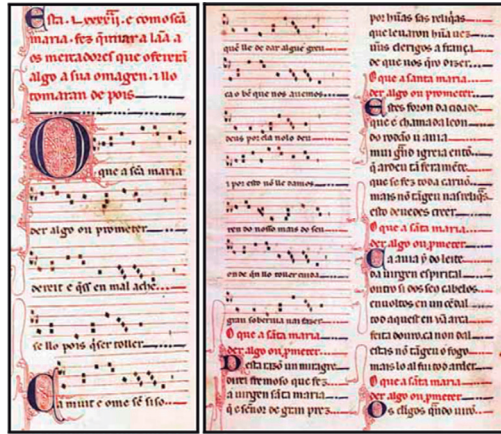 Esta .L.xxxxii. e como scã
maria. fez q̃imar a lãa a
os mercadores que ofererõ
algo a sua omagen. 7 llo
tomaran de pois
O que a scã maria
der algo ou prometer
dereit e q̃ss en mal ache
se llo pois q̃ser toller
Ca muit e ome sẽ siso
quẽ lle de dar algue greu
ca o bẽ que nos auemos
deus por ela nolo deu
7 por esto nõ lle damos
ren do nosso mais do seu
onde q̃n llo toller cuida
gran soberuia uai fazer
O que a sãta maria
der algo ou p̃meter
Desta razõ un miragre
direi fremoso que fez
a uirgen sãta maria
q̃ e señor de gran prez
por hũas sas reliq̃as
que leuaron hũa uez
uũs clerigos a frança
de que nos q̃ro dizer
O que a santa maria
der algo ou prometer
Estes foron da cidade
que e chamada leon
do rodão u auia
mui grãd igreia entõ
q̃ ardeu tã feramẽte
que se fez toda caruõ
mais nõ tãgeu nas reliq̃s
esto deuedes creer
O que a sãta maria
der algo ou p̃meter
Ca auia y do leite
da uirgen espirital
outrosi dos seus cabelos
enuoltos en un cẽdal
tod aquest en ũa arca
feita douro. ca non dal
estas nõ tãgeu o fogo
mais lo al fui tod arder
O que a sãta maria
der algo ou p̃meter
Os cligos q̃ndo uirõ